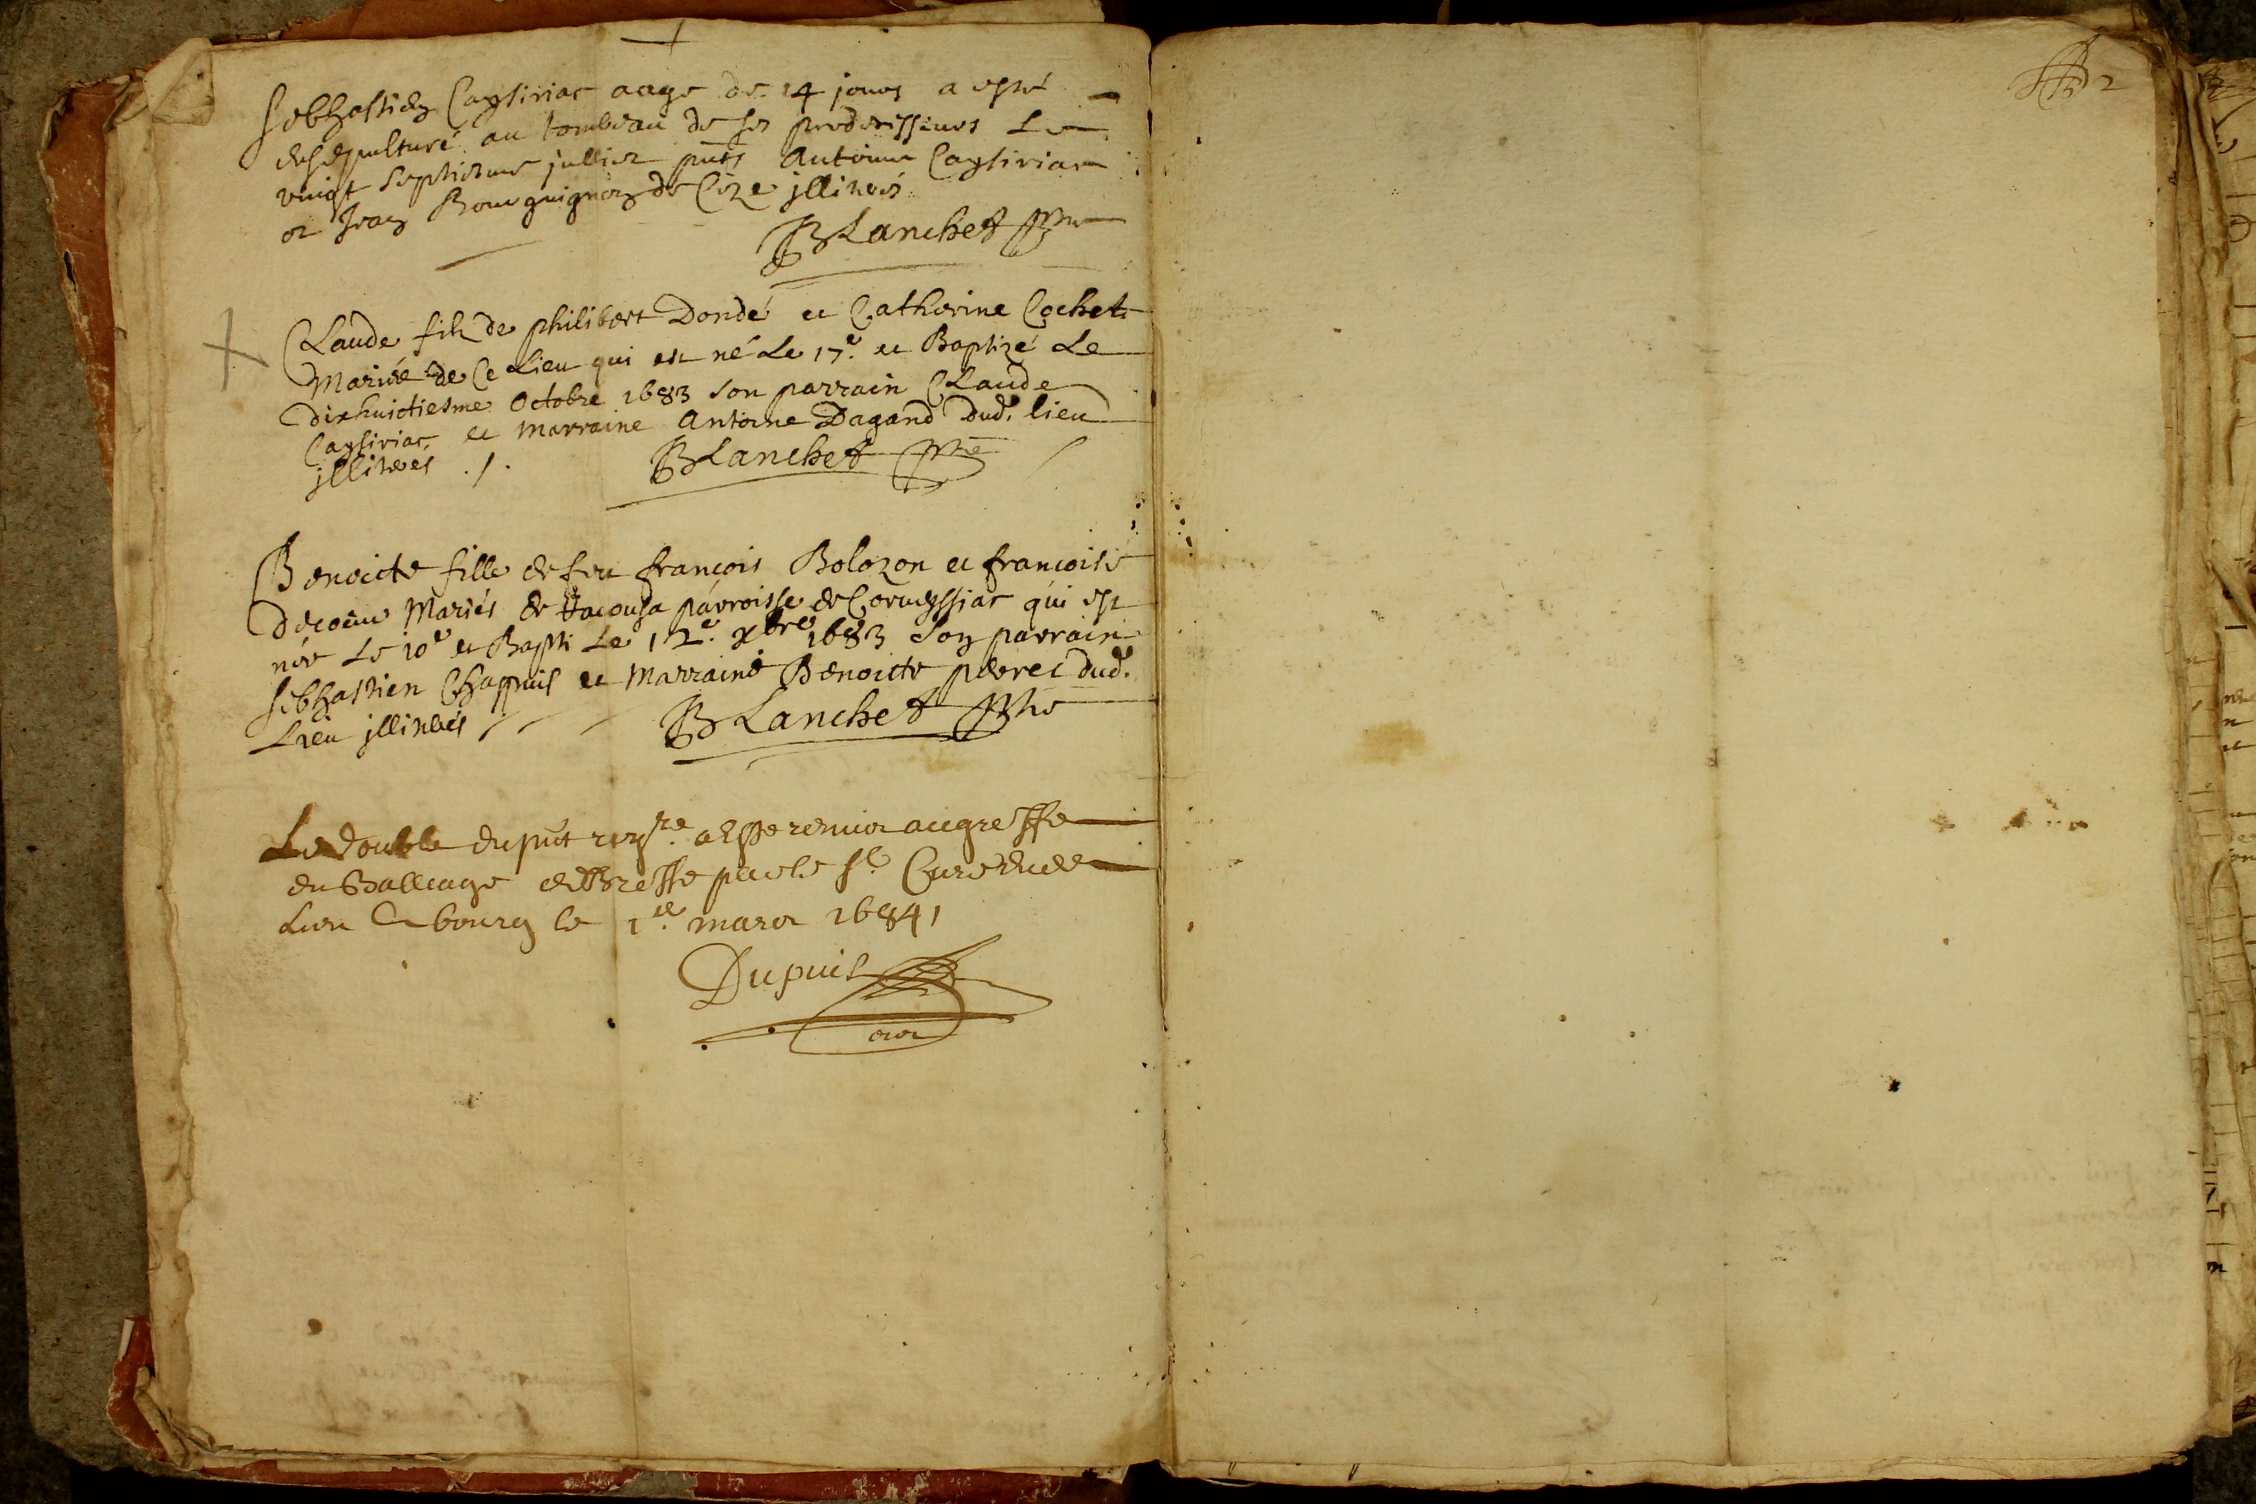 Sebhastien Caysiriac aage de 14 jours a esté
ensepulturé au tombeau de ses predecisseurs Le
vingt septiesme jullier pnts Antoine Caysiriac
et Jean Bourguignon de Cize illiterés
BLanchet ptre
CLaude filz de philibert Dondé et Catherine Cochet
Mariés de Ce Lieu qui est né Le 17e. et Baptizé Le
Dixhuictiesme Octobre 1683 son parrain CLaude
Caysiriac et marraine Antoine Dagand dud. lieu
illiterés ./.
BLanchet ptre
Benoicte fille de feu françois Bolozon et françoise
Mariés de parroisse de Corveyssiac qui est
née Le 10e et Bapti Le 12e. xbre 1683 Son parrain
Sebhastien Chappuis et Marraine Benoicte dud.
Lieu illiterés
BLanchet ptre
Le double du pnt regre. a este remis au greffe
du Balliage de Bresse par le Sr. Cure dud
Lieu A bourg le 1er. mars 1684
Dupuis